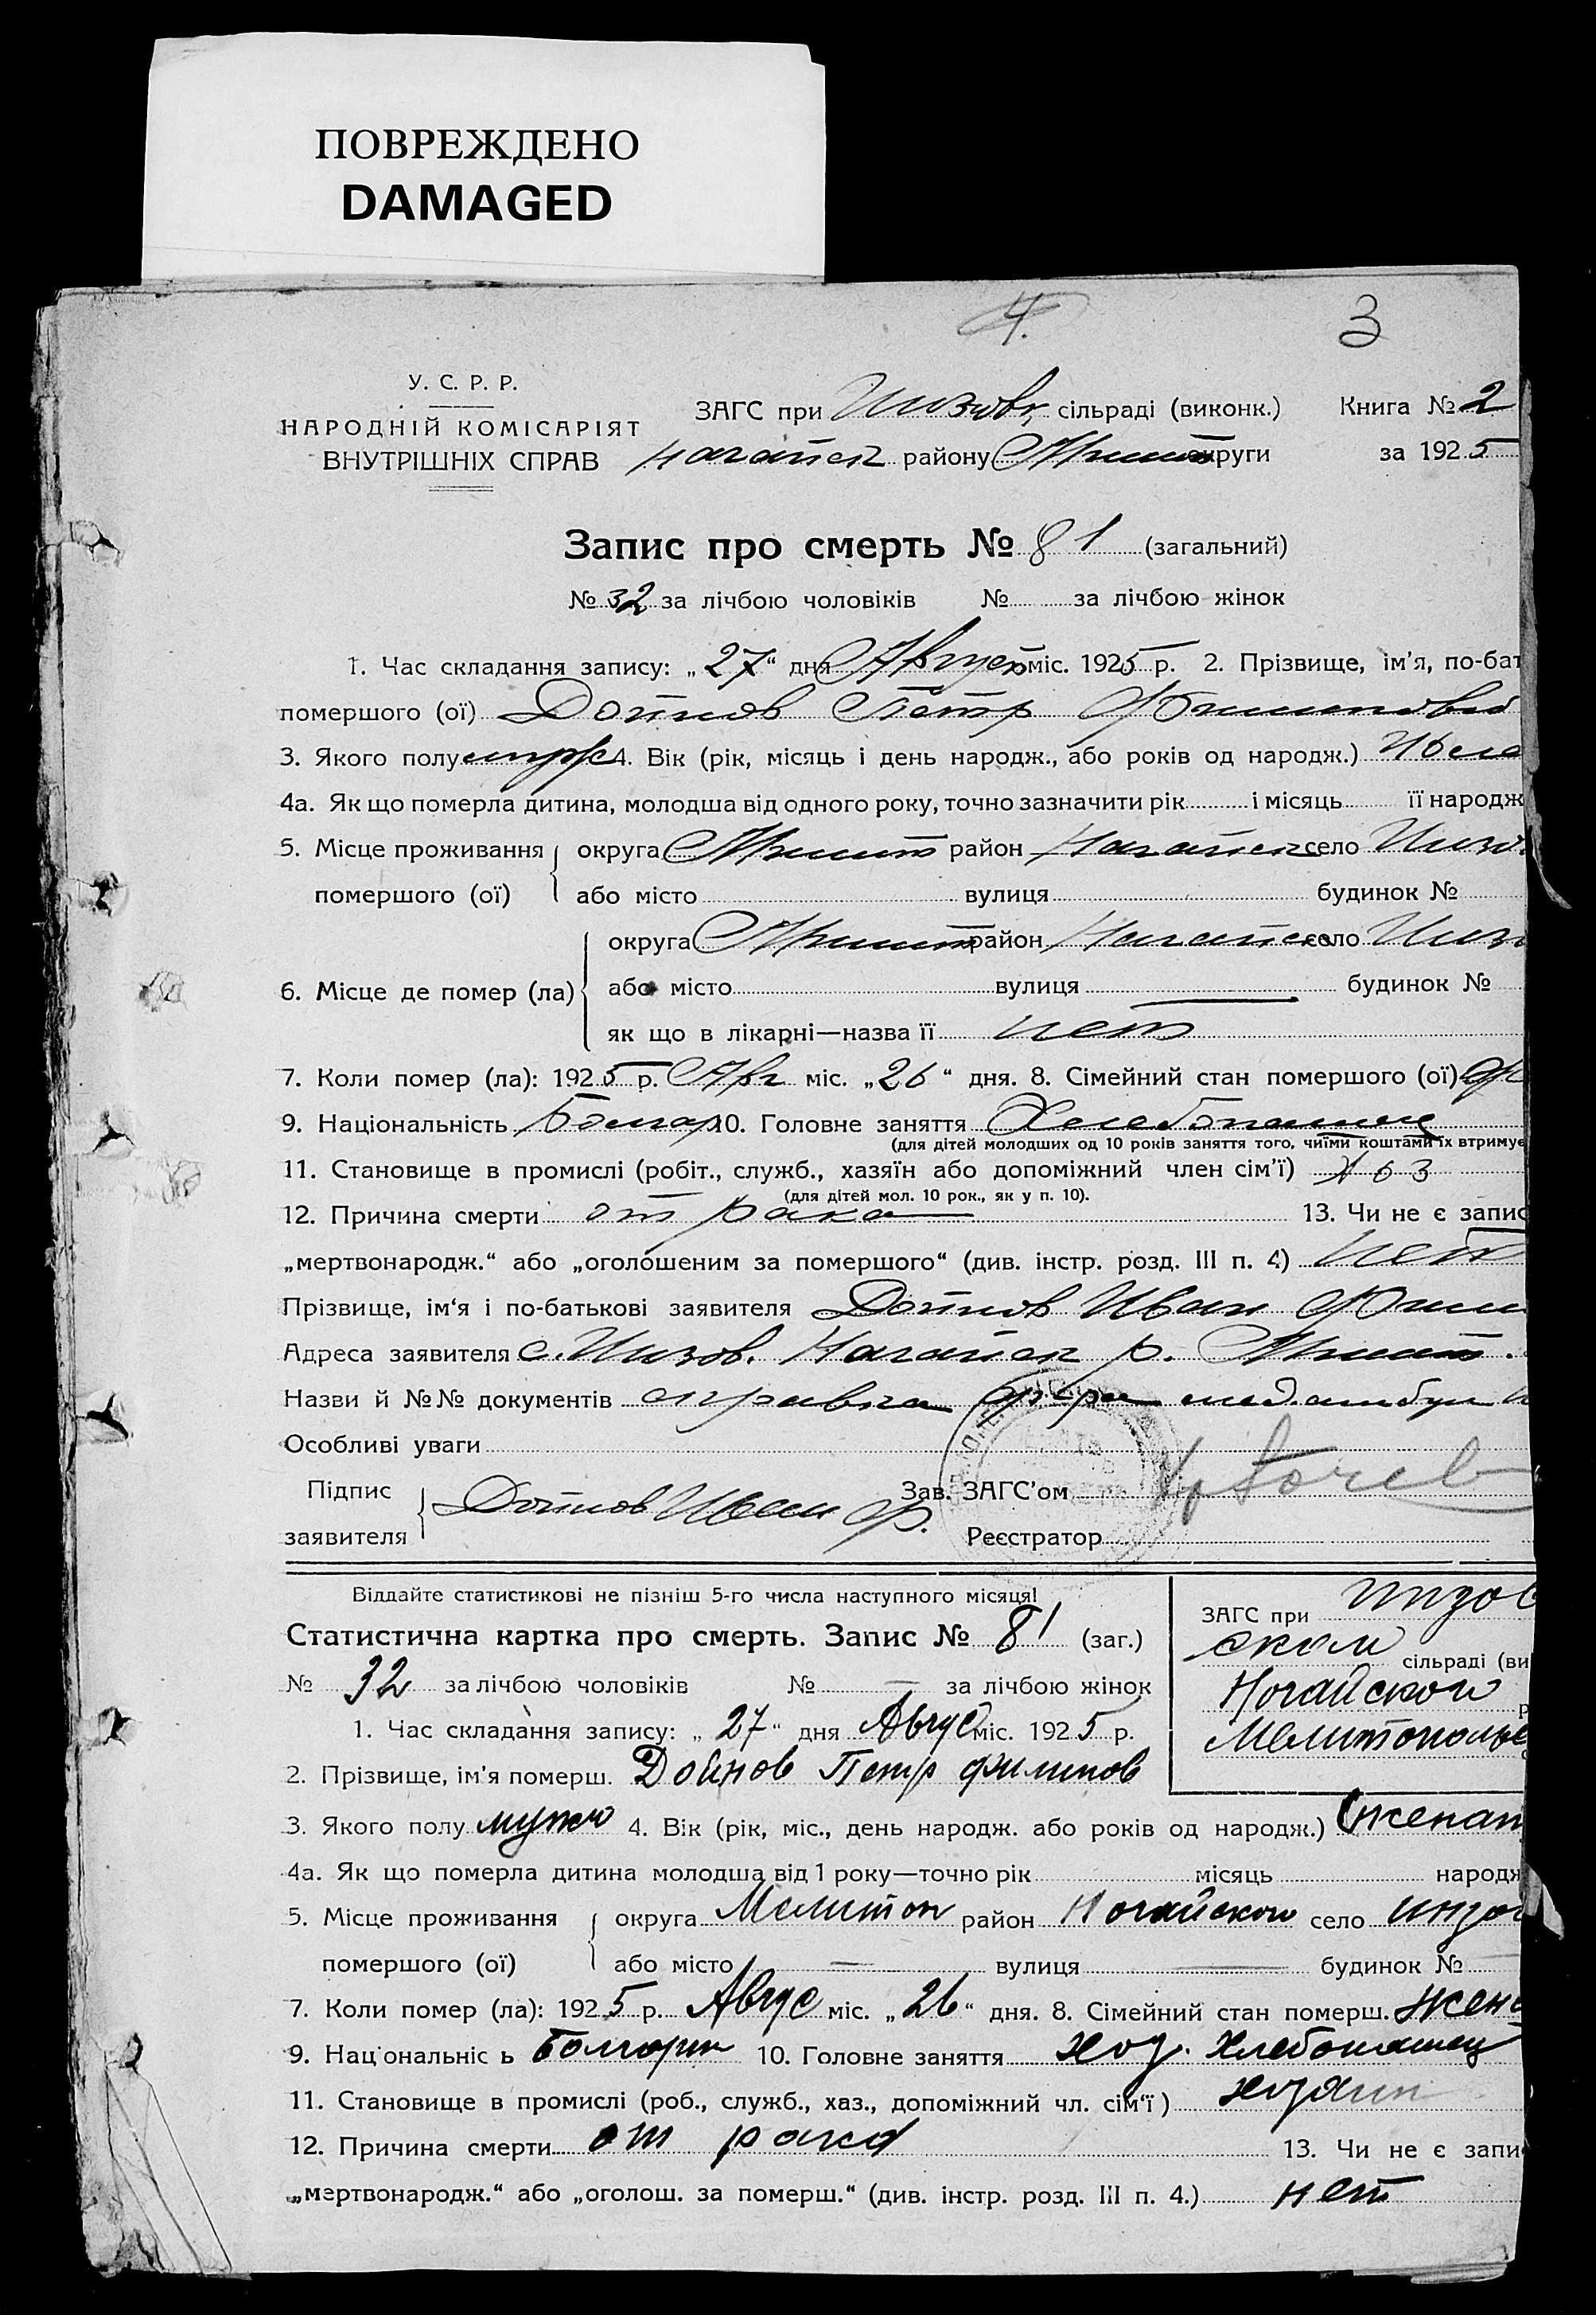 ПОВРЕЖДЕНО
DAMAGED
4.
3
У. С. Р. Р.
НАРОДНІЙ КОМІСАРІЯТ
ВНУТРІШНІХ СПРАВ
ЗАГС при Инзовк сільраді (виконк.) Книга № 2
Нагайск району округи за 1925
Запис про смерть № 81 (загальний)
№ 32 за лічбою чоловіків № за лічбою жінок
1. Час складання запису: „27“ дня Август міс. 1925 р. 2. Прізвище, ім'я, по-бат
помершого (ої) Дойнов Петр
3. Якого полу муж 4. Вік (рік, місяць і день народж., або років од народж.)
4а. Як що померла дитина, молодша від одного року, точно зазначити рік і місяць її народж
5. Місце проживання округа район Нагайск село Инзо
помершого (ої) або місто вулиця будинок №
округа район Нагайск село Инз
6. Місце де помер (ла) або місто вулиця будинок №
як що в лікарні—назва її нет
7. Коли помер (ла): 1925 р. Авг міс. „26“ дня. 8. Сімейний стан помершого (ої)
9. Національність Болгар 10. Головне заняття Хлебопашец
(для дітей молодших од 10 років заняття того, чиїми коштами їх втримує
11. Становище в промислі (робіт., служб., хазяїн або допоміжний член сім'ї) хоз
(для дітей мол. 10 рок., як у п. 10).
12. Причина смерти от рака 13. Чи не є запис
„мертвонародж.“ або „оголошеним за помершого“ (див. інстр. розд. III п. 4) нет
Прізвище, ім'я і по-батькові заявителя Дойнов Иван
Адреса заявителя с. Инзов. Нагайск р.
Назви й №№ документів справка
Особливі уваги
Підпис Дойнов Иван Ф. Зав. ЗАГС'ом
заявителя Реєстратор
Віддайте статистикові не пізніш 5-го числа наступного місяця!
Статистична картка про смерть. Запис № 81 (заг.)
№ 32 за лічбою чоловіків № — за лічбою жінок
1. Час складання запису: „27“ дня Авгус міс. 1925 р.
2. Прізвище, ім'я померш. Дойнов Петр Филипов
ЗАГС при Инзов
ском сільраді (ви
Ногайского р
Мелитополье
3. Якого полу мужс 4. Вік (рік, міс., день народж. або років од народж.) (женат
4а. Як що померла дитина молодша від 1 року—точно рік місяць народж
5. Місце проживання округа Мелитоп район Ногайского село Инзов
помершого (ої) або місто — вулиця — будинок №
7. Коли помер (ла): 1925 р. Авгус міс. „26“ дня. 8. Сімейний стан померш. жена
9. Нац ональніс ь Болгарин 10. Головне заняття хоз. Хлебопашец
11. Становище в промислі (роб., служб., хаз., допоміжний чл. сім'ї) хозяин
12. Причина смерти от рака 13. Чи не є запи
„мертвонародж.“ або „оголош. за померш.“ (див. інстр. розд. III п. 4.) нет